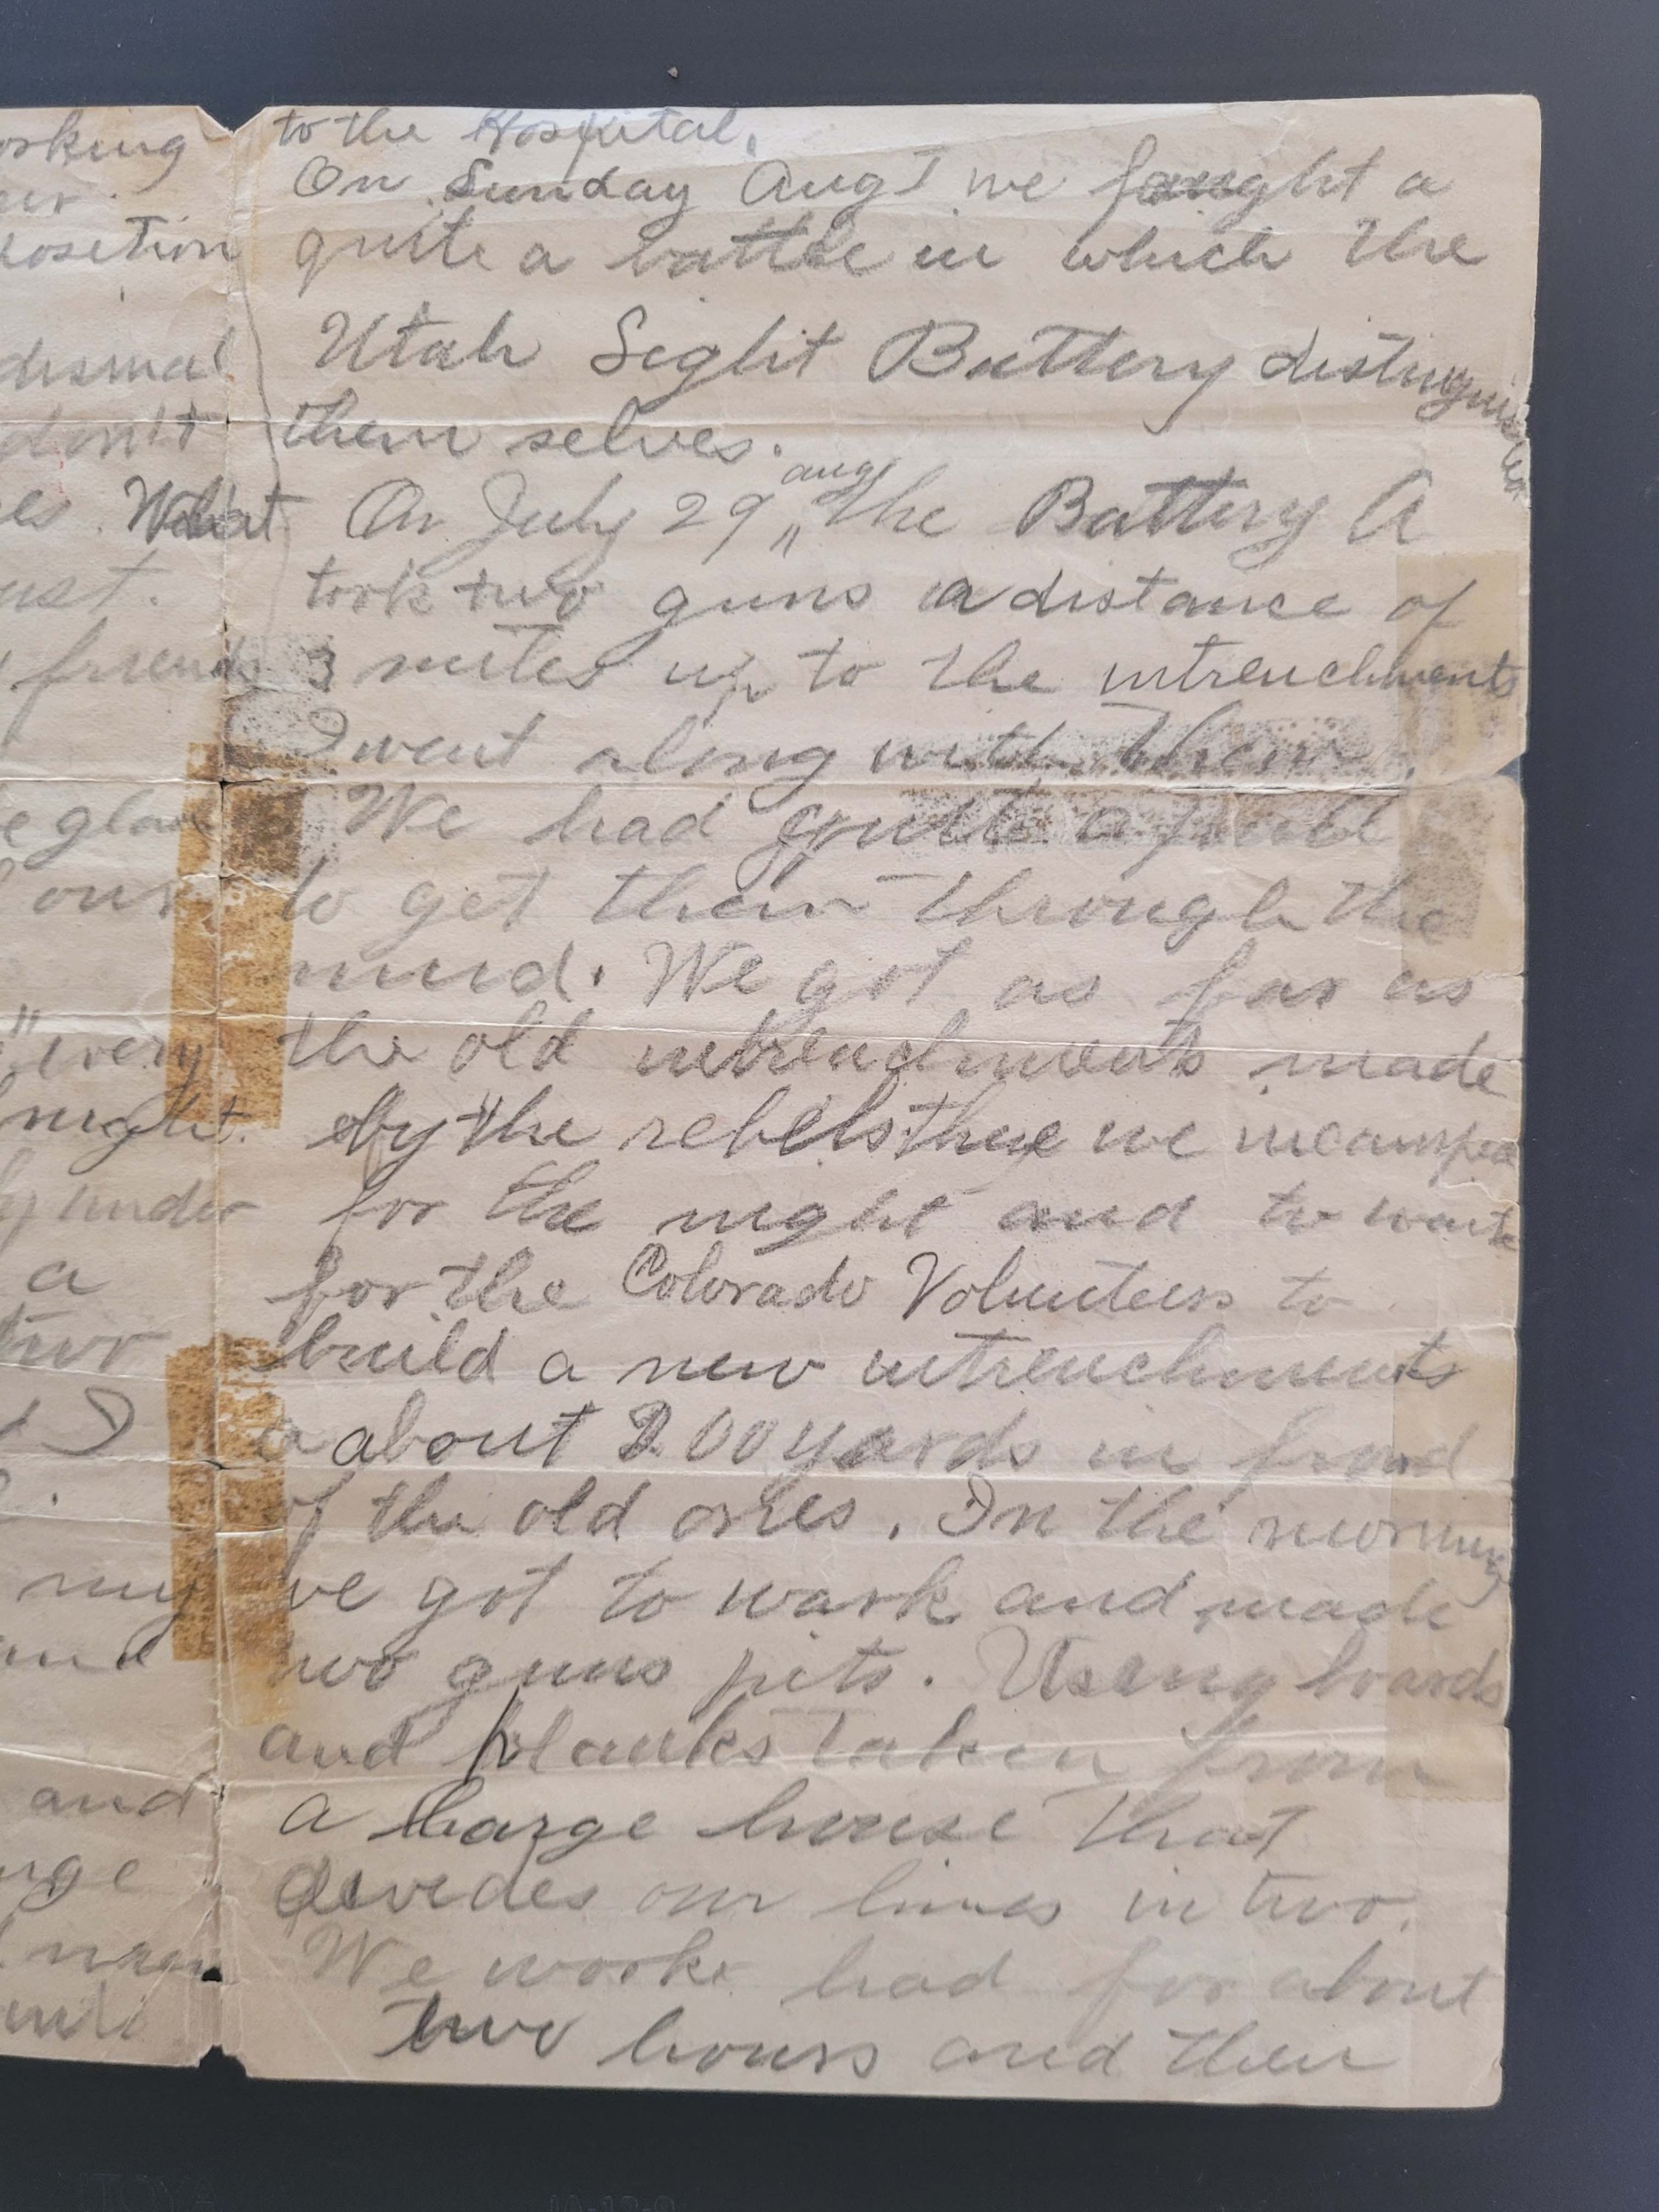 orking
position
dismal
don't
es. What
ust.
friends
e glan
our
" very
night.
y under
a
two
I
my
and
nge
to the Hospital.
On Sunday Aug 1 we fought a
quite a battle in which the
Utah Light Battery distinguished
them selves.
On July 29 " the Battery A
aug
took two guns a distance of
3 miles up to the intrenchments
I went along with them.
We had quite a pull
to get them through the
mud. We got as far as
the old intrenchments made
by the rebels there we incamped
for the night and to waite
for the Colorado Volunteers to
build a new intrenchments
a about 200 yards in frond
of the old ones. In the morning
we got to work and made
two guns pits. Useing boards
and planks taken from
a large house that
devides our lines in two.
We worke had for about
two hours and then